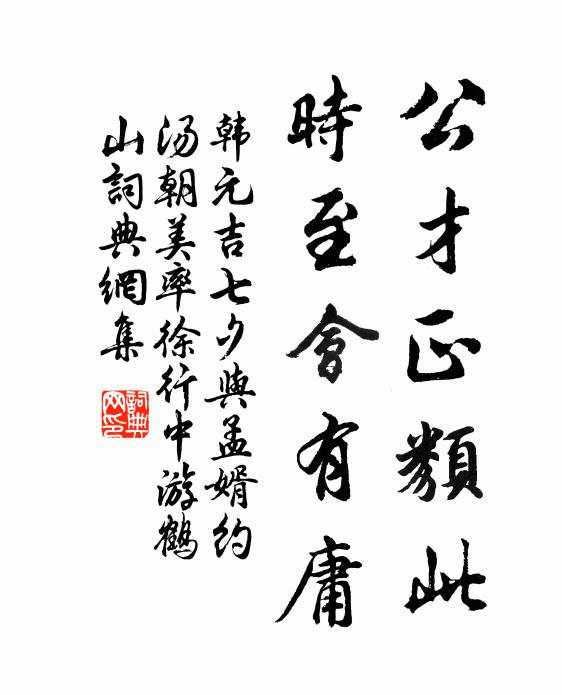 公才正類此
時至會有庸
韩元吉七夕與孟婿约
汤朝美率徐行中游鹤
山詞典網集
詞典
网印